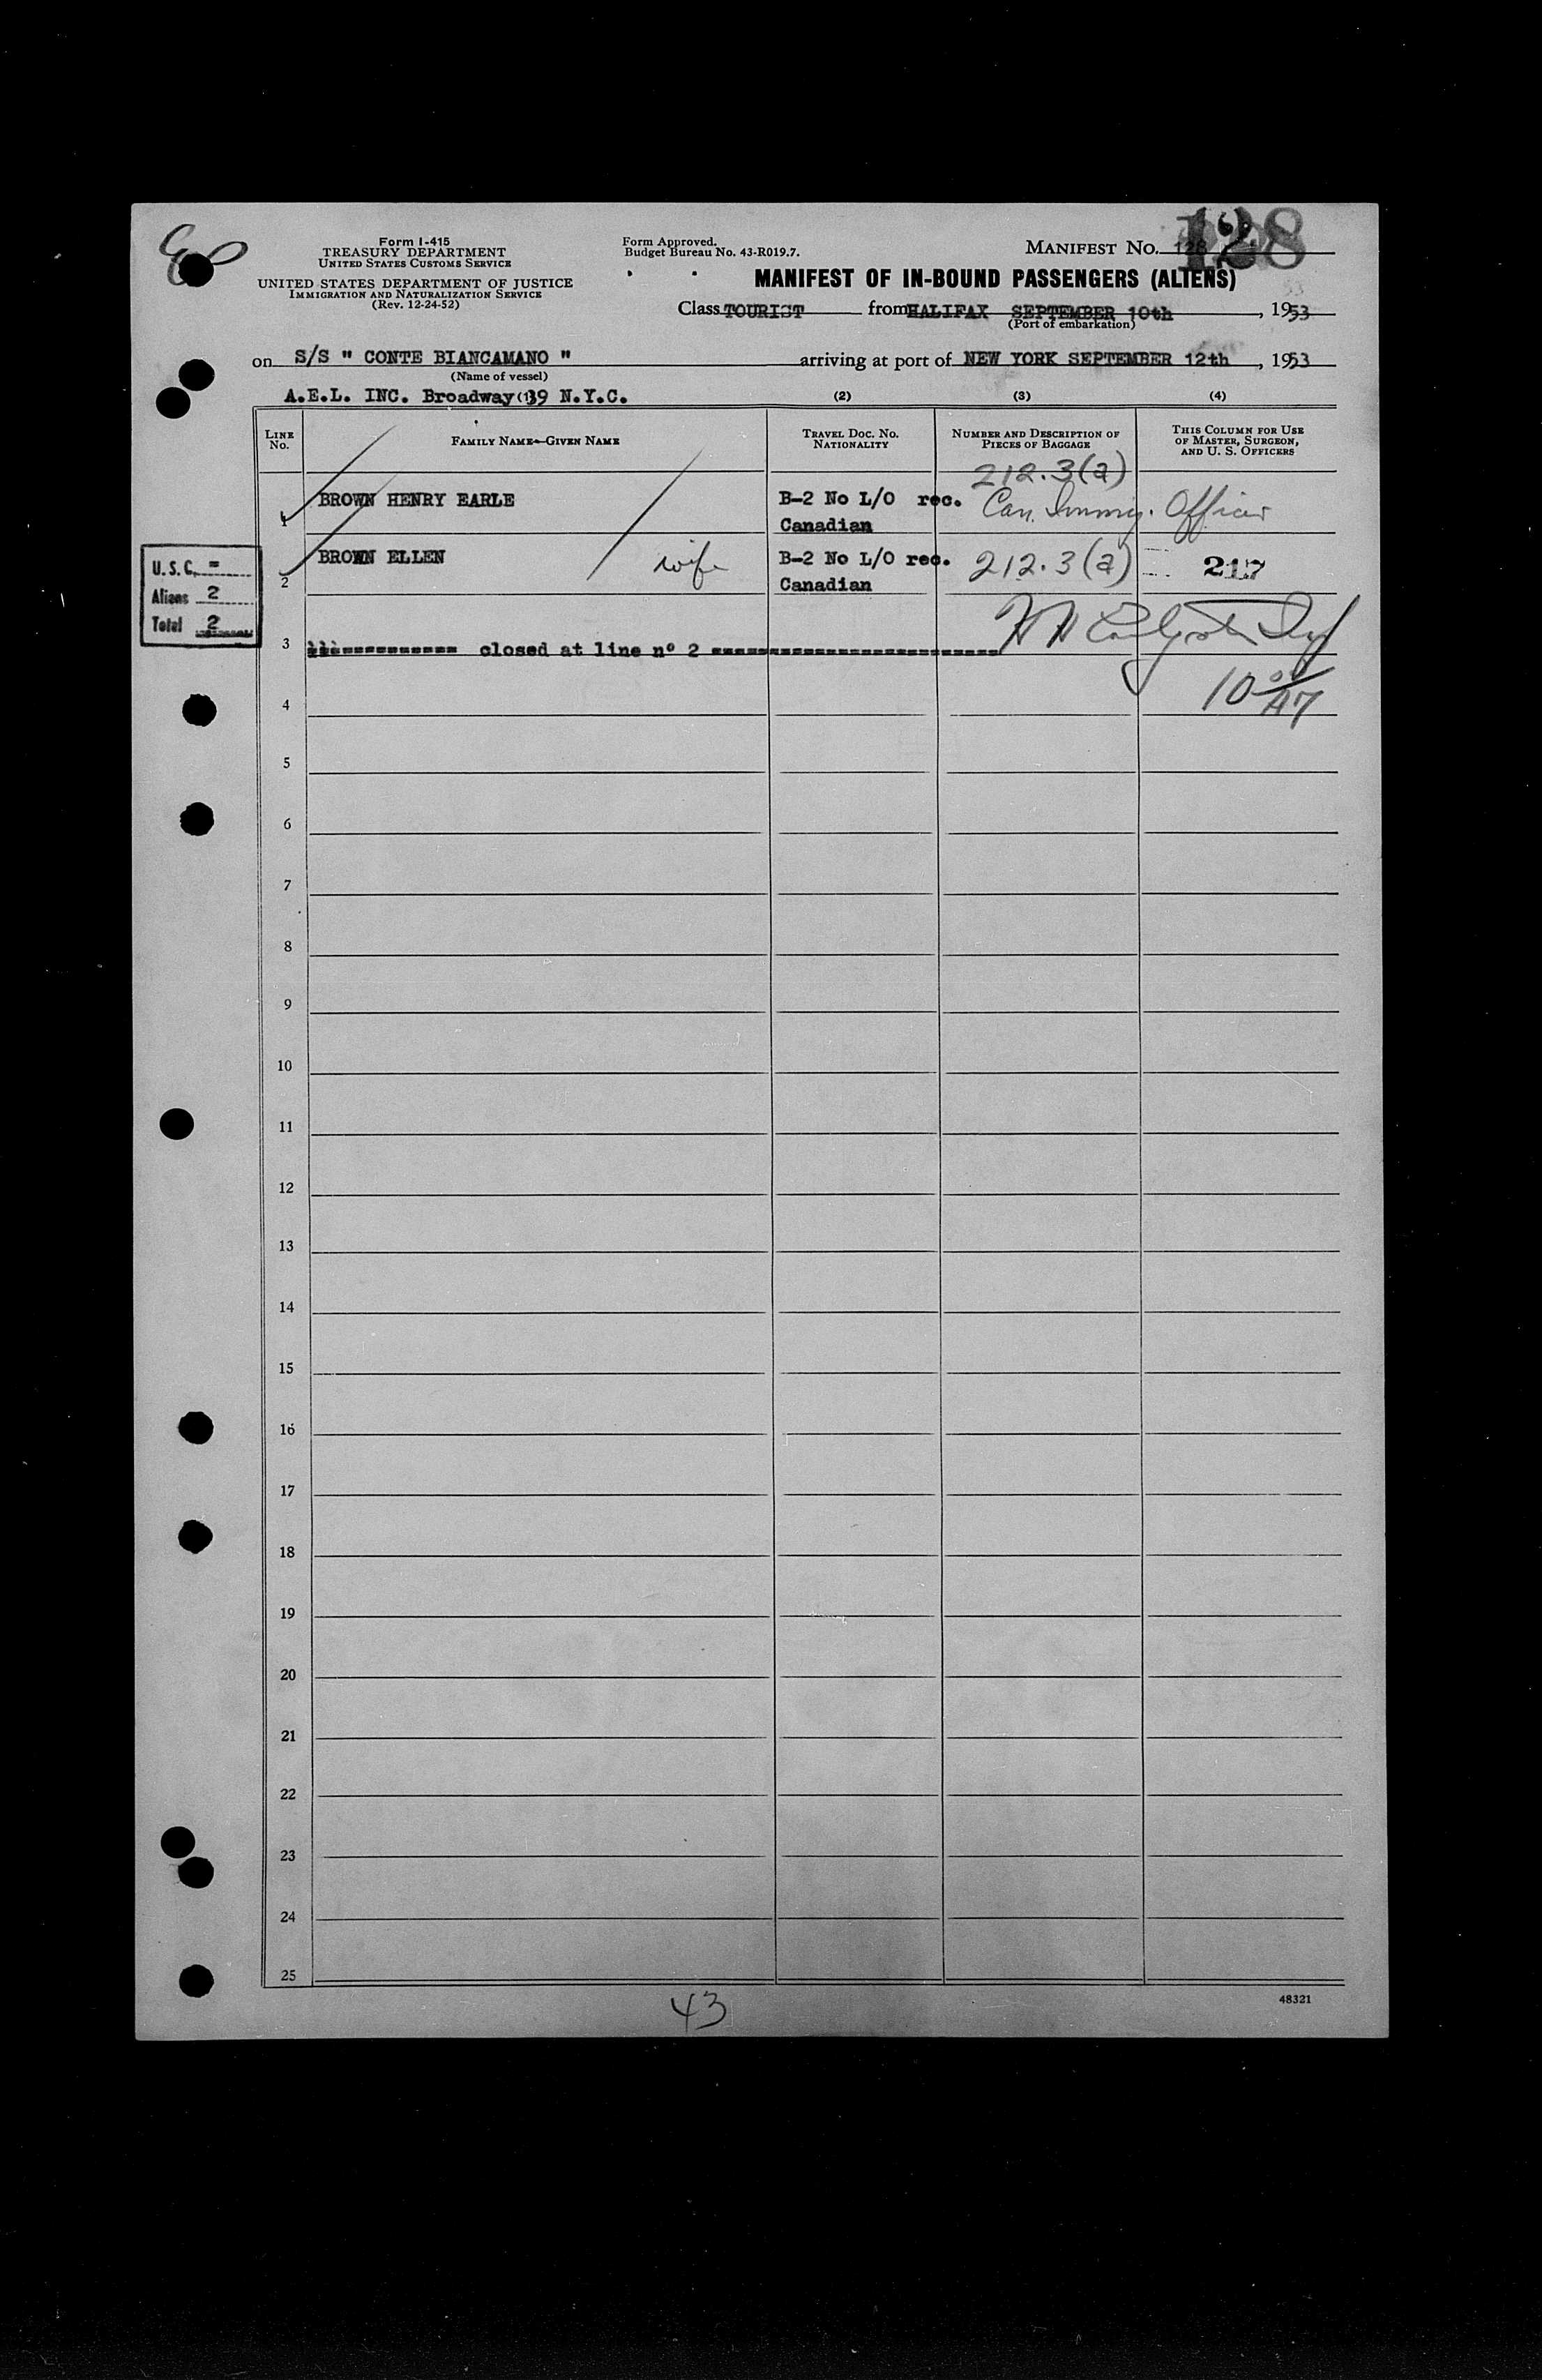 Form I-415
TREASURY DEPARTMENT
UNITED STATES CUSTOMS SERVICE
UNITED STATES DEPARTMENT OF JUSTICE
IMMIGRATION AND NATURALIZATION SERVICE
(Rev. 12-24-52)
Form Approved.
Budget Bureau No. 43-R019.7.
MANIFEST NO. 128
128
MANIFEST OF IN-BOUND PASSENGERS (ALIENS)
Class TOURIST from HALIFAX SEPTEMBER 10th, 1953
(Port of embarkation)
on S/S " CONTE BIANCAMANO " arriving at port of NEW YORK SEPTEMBER 12th, 1953
(Name of vessel)
A.E.L. INC. Broadway 39 N.Y.C.
(1) (2) (3) (4)
LINE No.
FAMILY NAME—GIVEN NAME
TRAVEL DOC. NO. NATIONALITY
NUMBER AND DESCRIPTION OF PIECES OF BAGGAGE
THIS COLUMN FOR USE OF MASTER, SURGEON, AND U. S. OFFICERS
1 BROWN HENRY EARLE B-2 No L/O rec. Canadian 212.3(a) Can. Immig. Officer
2 BROWN ELLEN wife B-2 No L/O rec. Canadian 212.3(a) 217
U.S.C. =
Aliens 2
Total 2
3 closed at line nº 2
4
5
6
7
8
9
10
11
12
13
14
15
16
17
18
19
20
21
22
23
24
25
43
48321